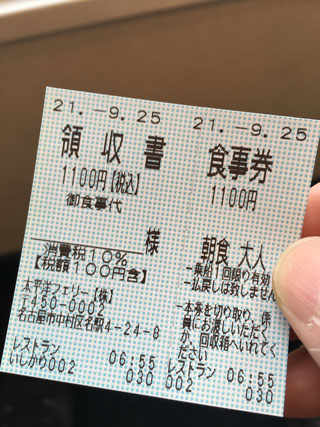 21.-9.25
領収書
1100円【税込】
御食事代
様
消費税10%
【税額100円含】
太平洋フェリー【株】
〒450-0002
名古屋市中村区名駅4-24-8
レストラン 06:55
いしかり002 030
21.-9.25
食事券
1100円
朝食 大人
一乗船1回限り有効
一払戻しは致しません
一本券を切り取り、係
員にお渡しいただく
か、回収箱へいれてく
ださい
レストラン 06:55
002 030